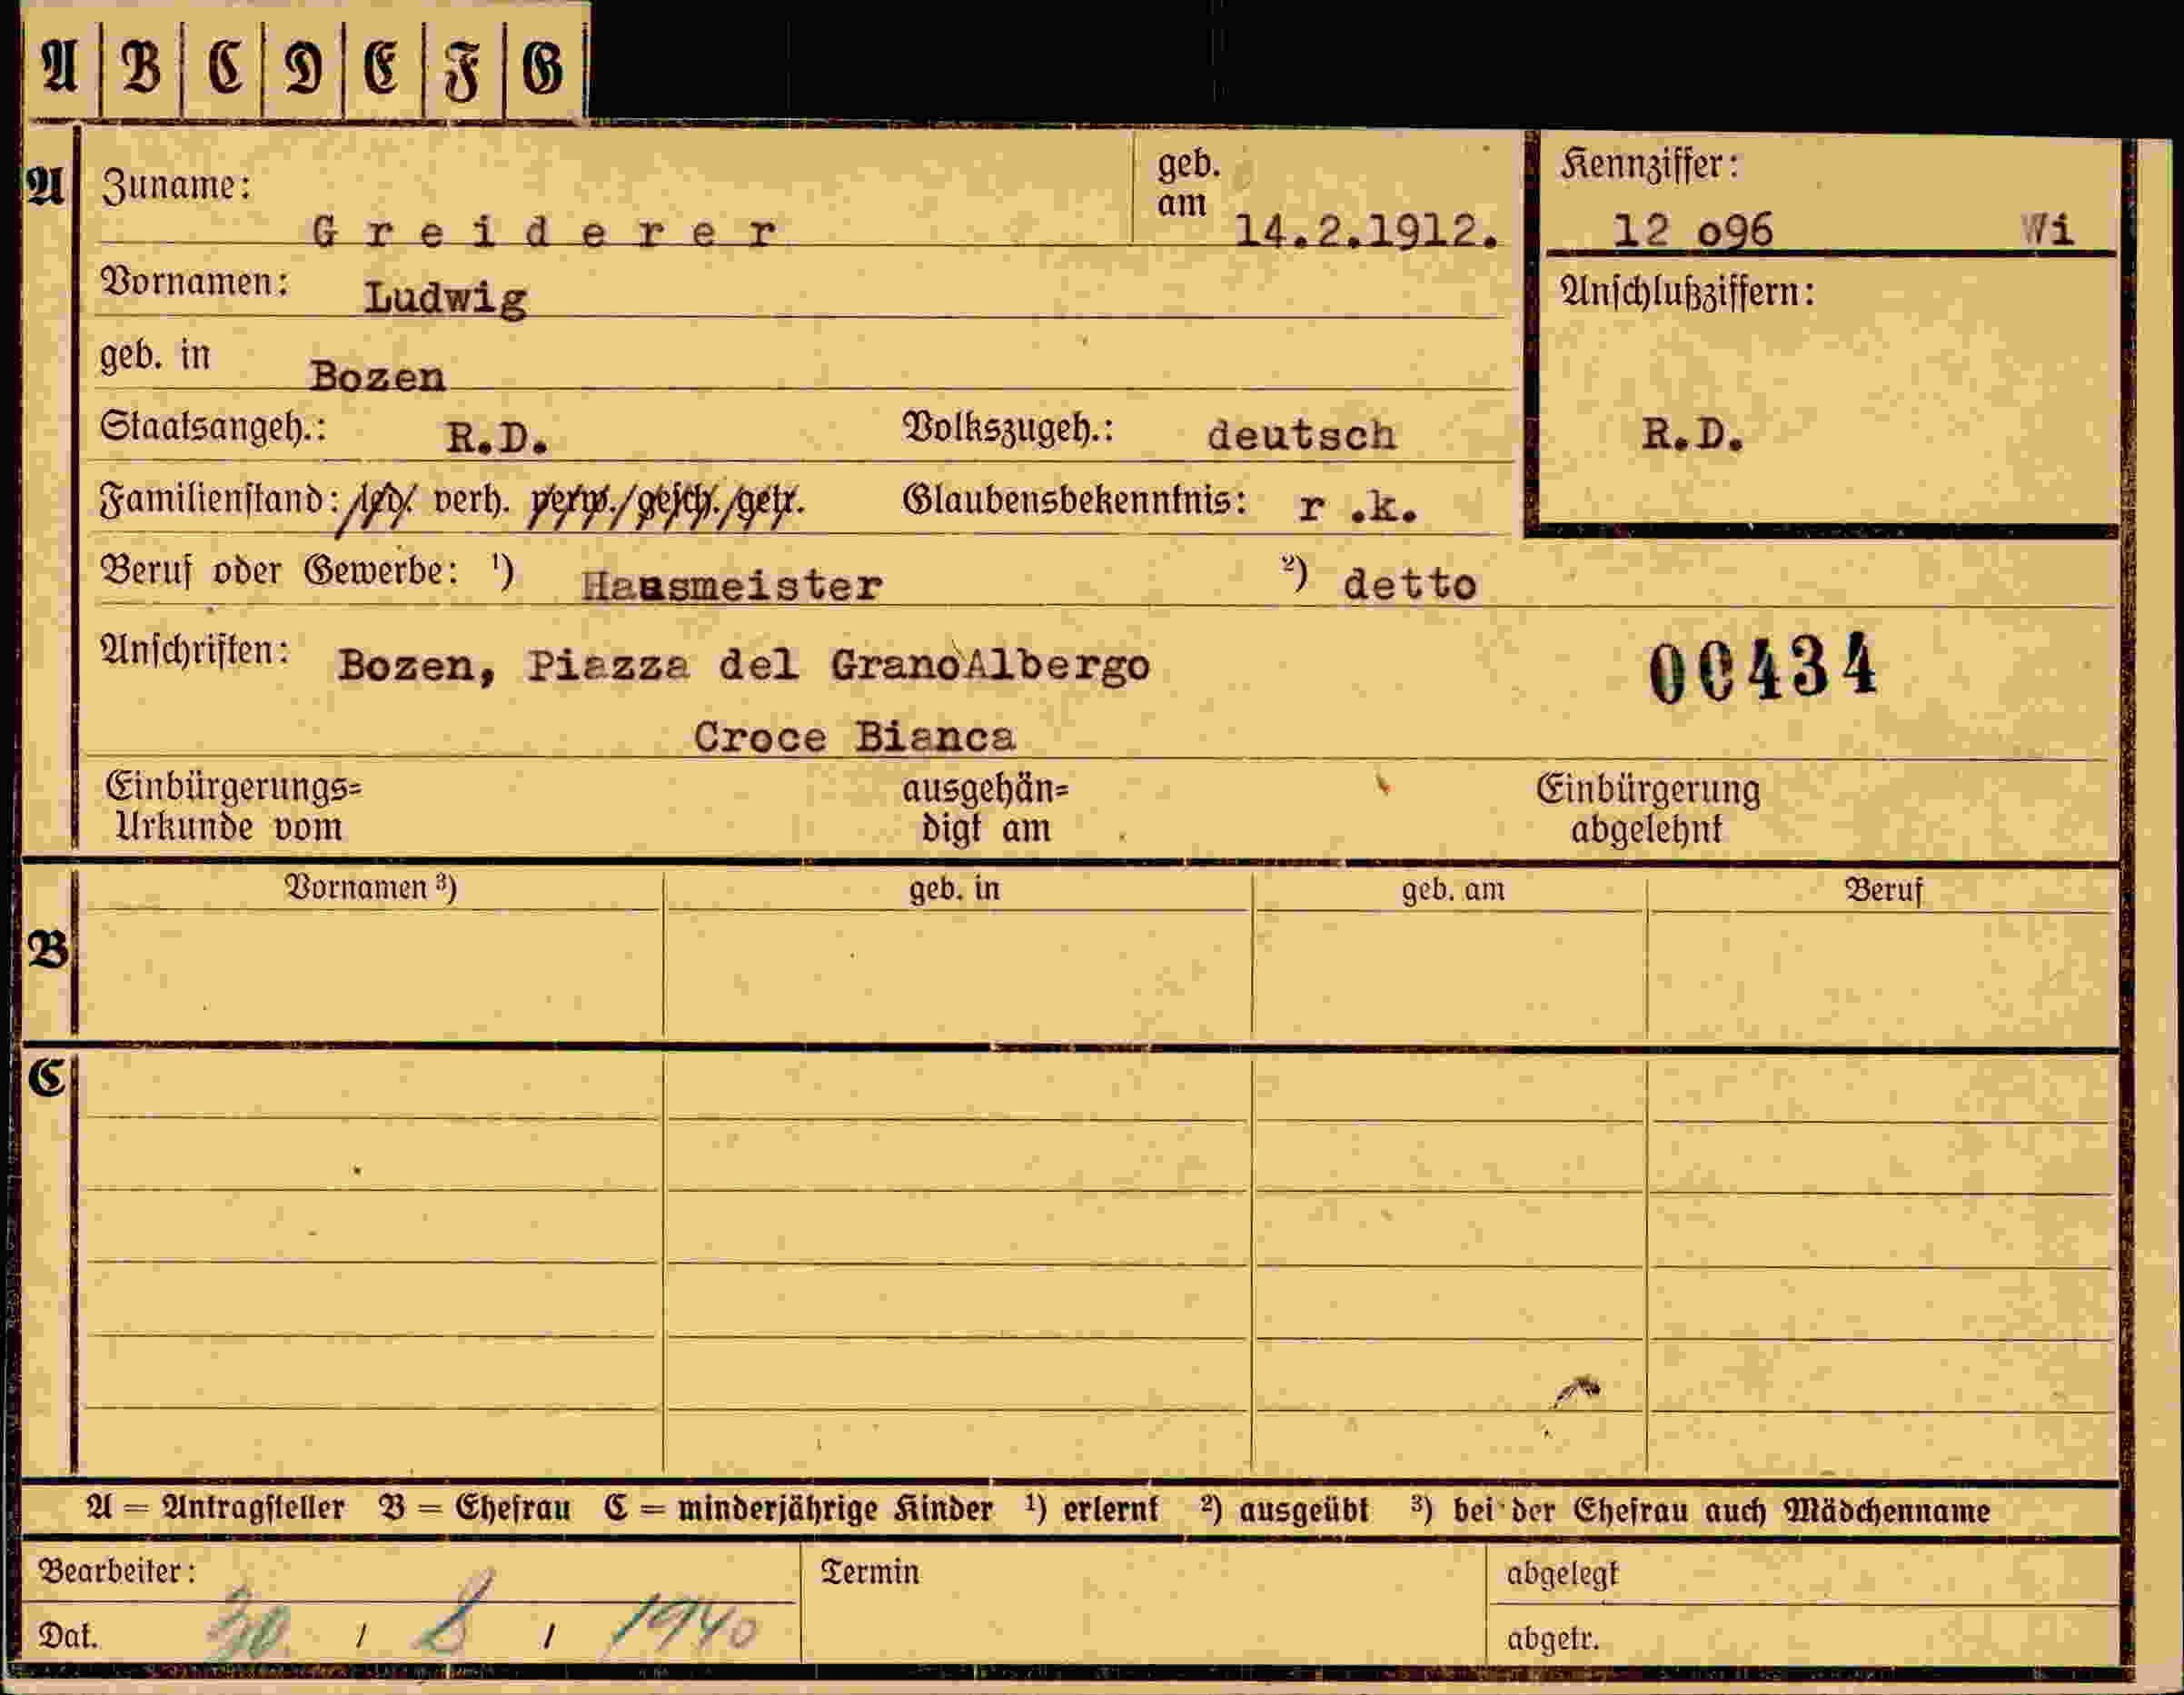 A B C D E F G
A Zuname: Greiderer geb. am 14.2.1912. Kennziffer: 12 o96 Wi
Vornamen: Ludwig Anschlußziffern:
geb. in Bozen
Staatsangeh.: R.D. Volkszugeh.: deutsch R.D.
Familienstand: led. verh. verw./gesch./getr. Glaubensbekenntnis: r .k.
Beruf oder Gewerbe: ¹) Hausmeister ²) detto
Anschriften: Bozen, Piazza del Grano Albergo 00434
Croce Bianca
Einbürgerungs= ausgehän= Einbürgerung
Urkunde vom digt am abgelehnt
Vornamen ³) geb. in geb. am Beruf
B
C
A = Antragsteller B = Ehefrau C = minderjährige Kinder ¹) erlernt ²) ausgeübt ³) bei der Ehefrau auch Mädchenname
Bearbeiter: Termin abgelegt
Dat. 30 / 8 / 1940 abgetr.